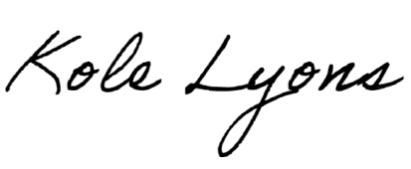 Kole Lyons